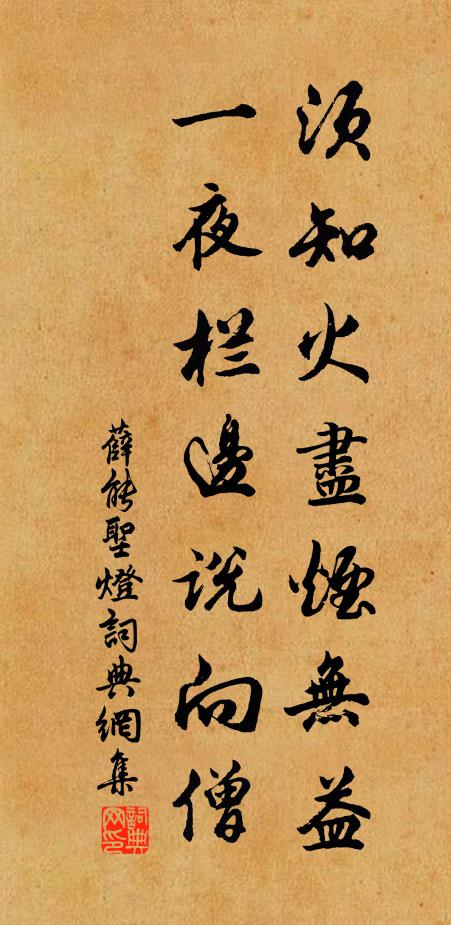 須知火盡煙無益
一夜栏邊説向僧
薛能聖燈詞典網集
詞典网印